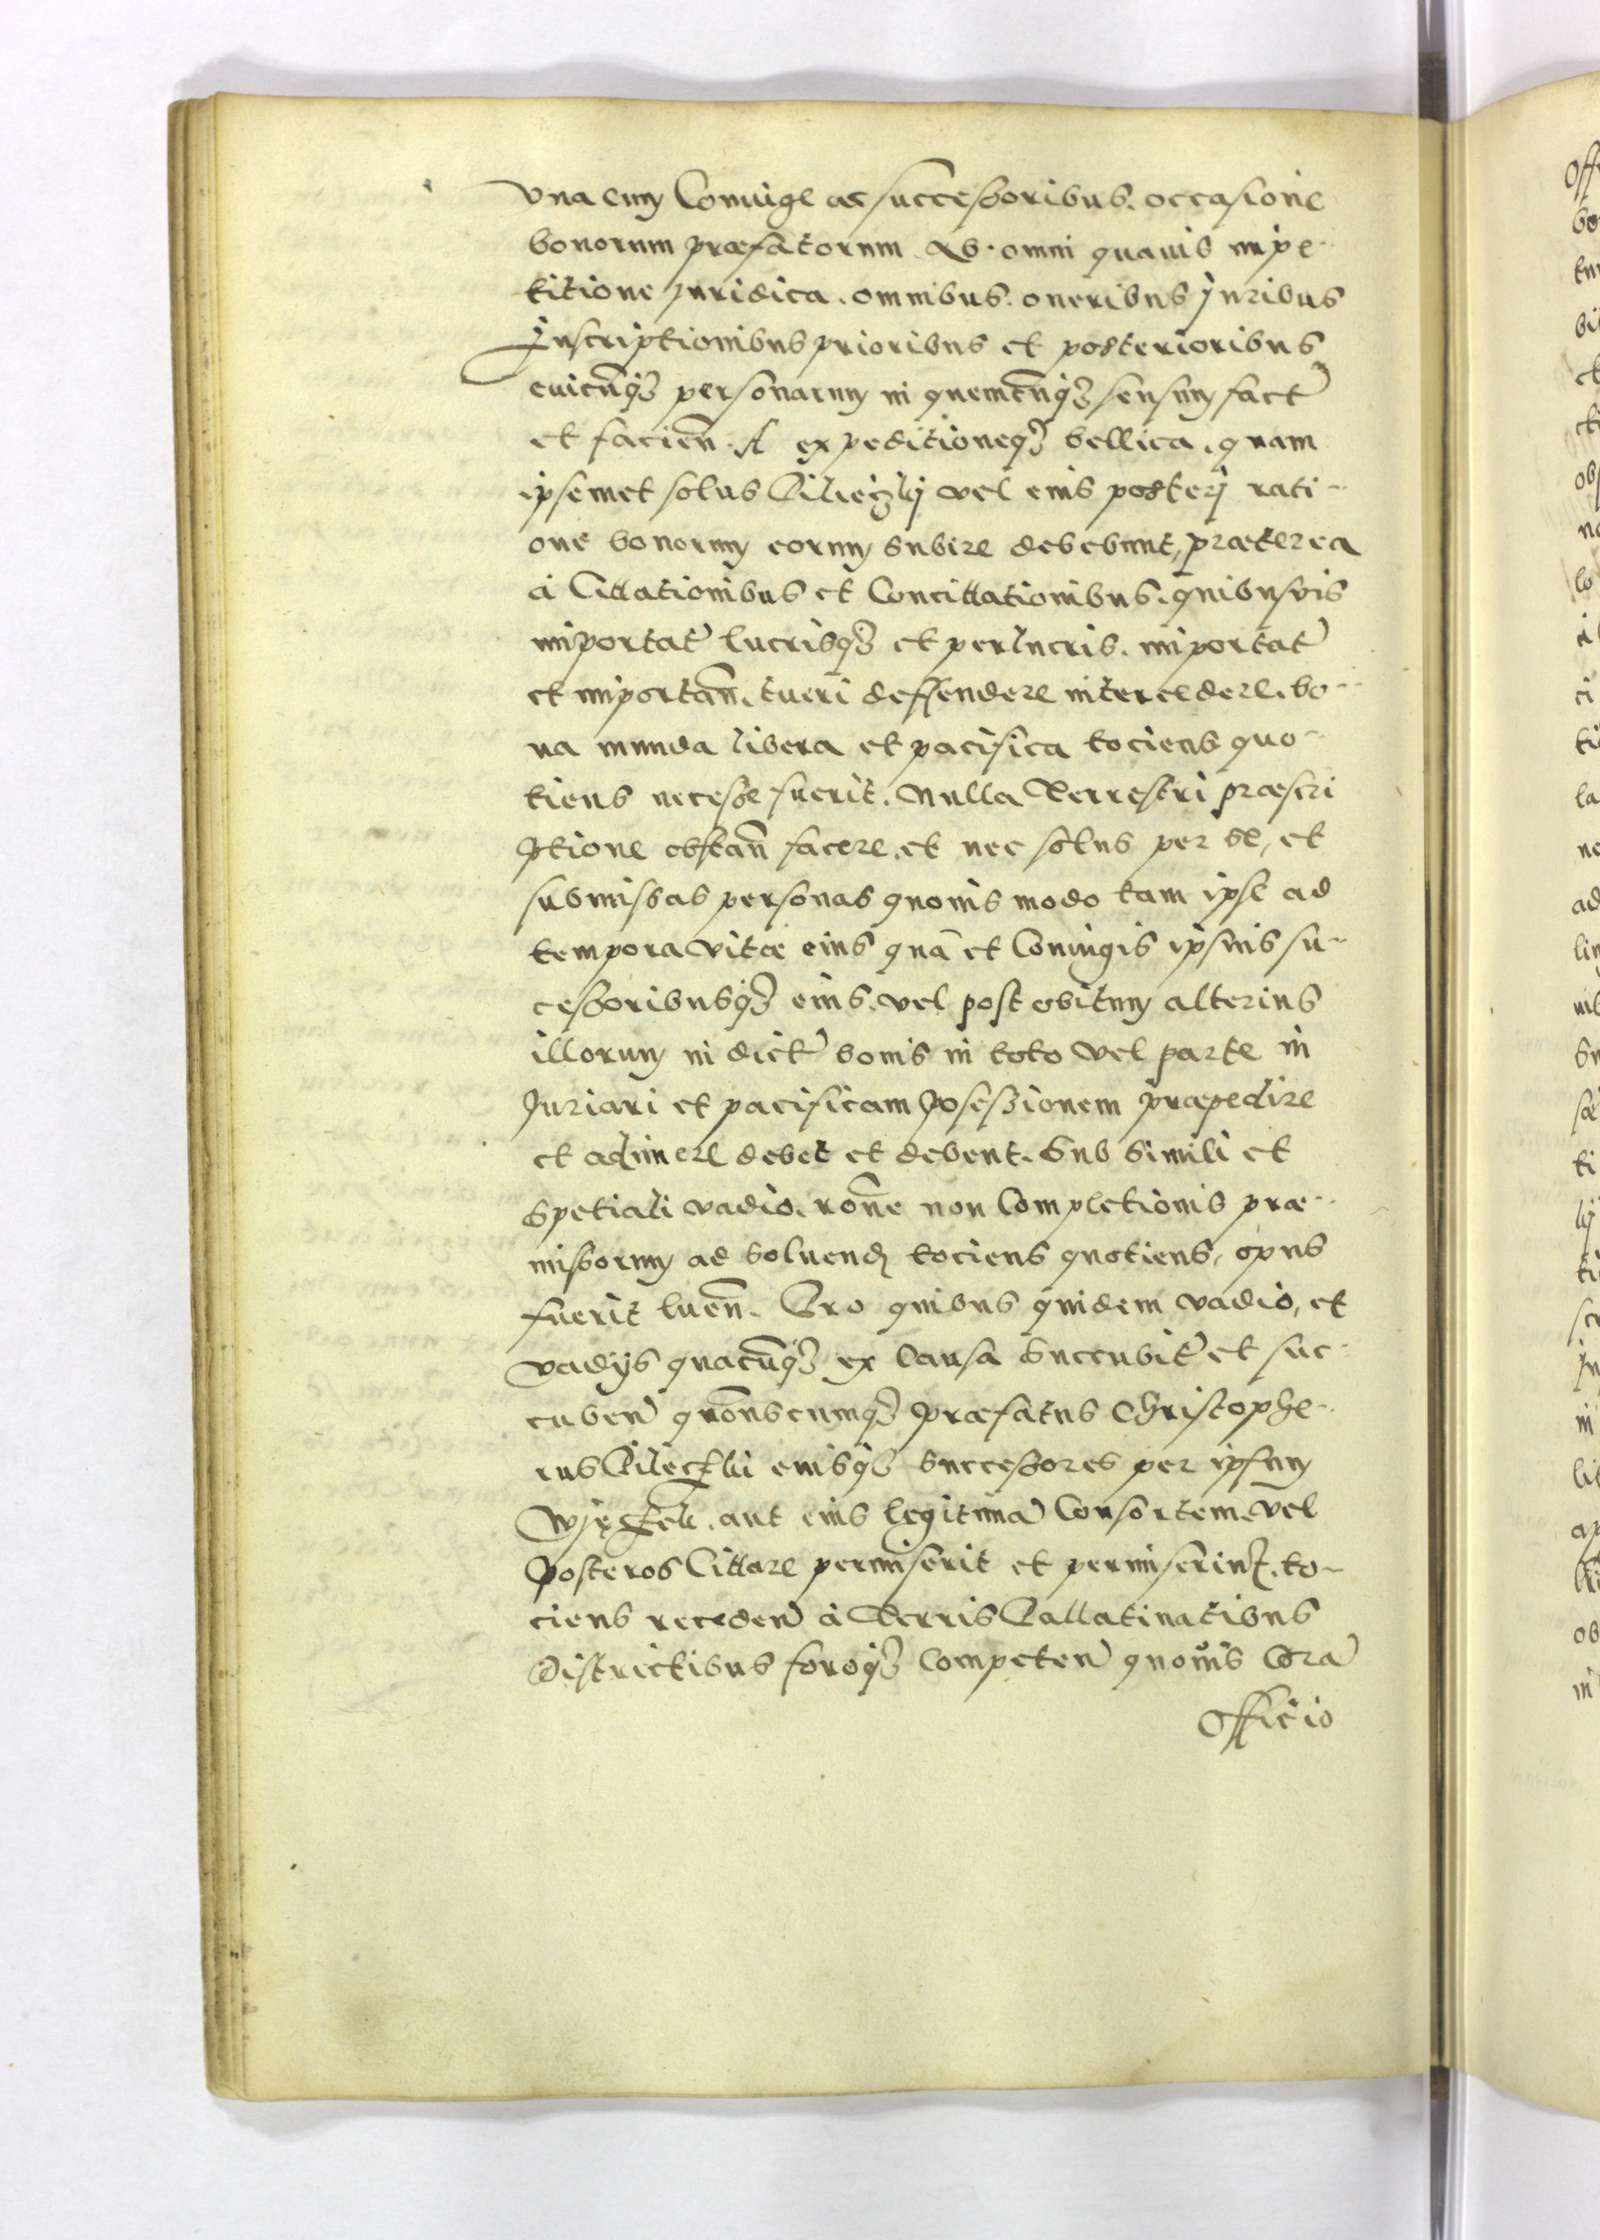 vna cum Coniuge ac successoribus. occasione
bonorum præfatorum Ab omni quauis impe-
titione juridica. omnibus. oneribus Juribus
Inscriptionibus prioribus et posterioribus
cuicūq3 personarum in quemcūq3 sensum fact
et facien̄. expeditioneq3 bellica. quam
ipsemet solus vel eius posterj rati-
one bonorum eorum subire debebunt, præterea
à Cittationibus et Concittationibus. quibusvis
importat lucrisq3 et perlucris. importat
et importan̄. tueri deffendere intercedere. bo-
na munda libera et pacifica tociens quo-
tiens necesse fuerit. Nulla Terrestri præscri
ptione obstan̄ facere. et nec solus per se, et
submissas personas quouis modo tam ipse ad
tempora vitæ eius quā et Coniugis ipsius su-
cessoribusq3 eius. vel post obitum alterius
illorum in dict bonis in toto vel parte in
Juriari et pacificam posessionem præpedire
et adimere debet et debent. Sub simili et
spetiali vadio. rōne non Completionis præ-
missorum ad soluend tociens quotiens, opus
fuerit luen̄. Pro quibus quidem vadio, et
vadijs quacūq3 ex Causa Succubit et suc-
cuben quōnscumq3 præfatus Christophe-
rus eiusq3 successores per ipsum
aut eius legitimā Consortem vel
posteros Cittare permiserit et permiserint. to-
ciens receden à Terris Pallatinatibus
Districtibus foroq3 Competen quouis Corā
Officio